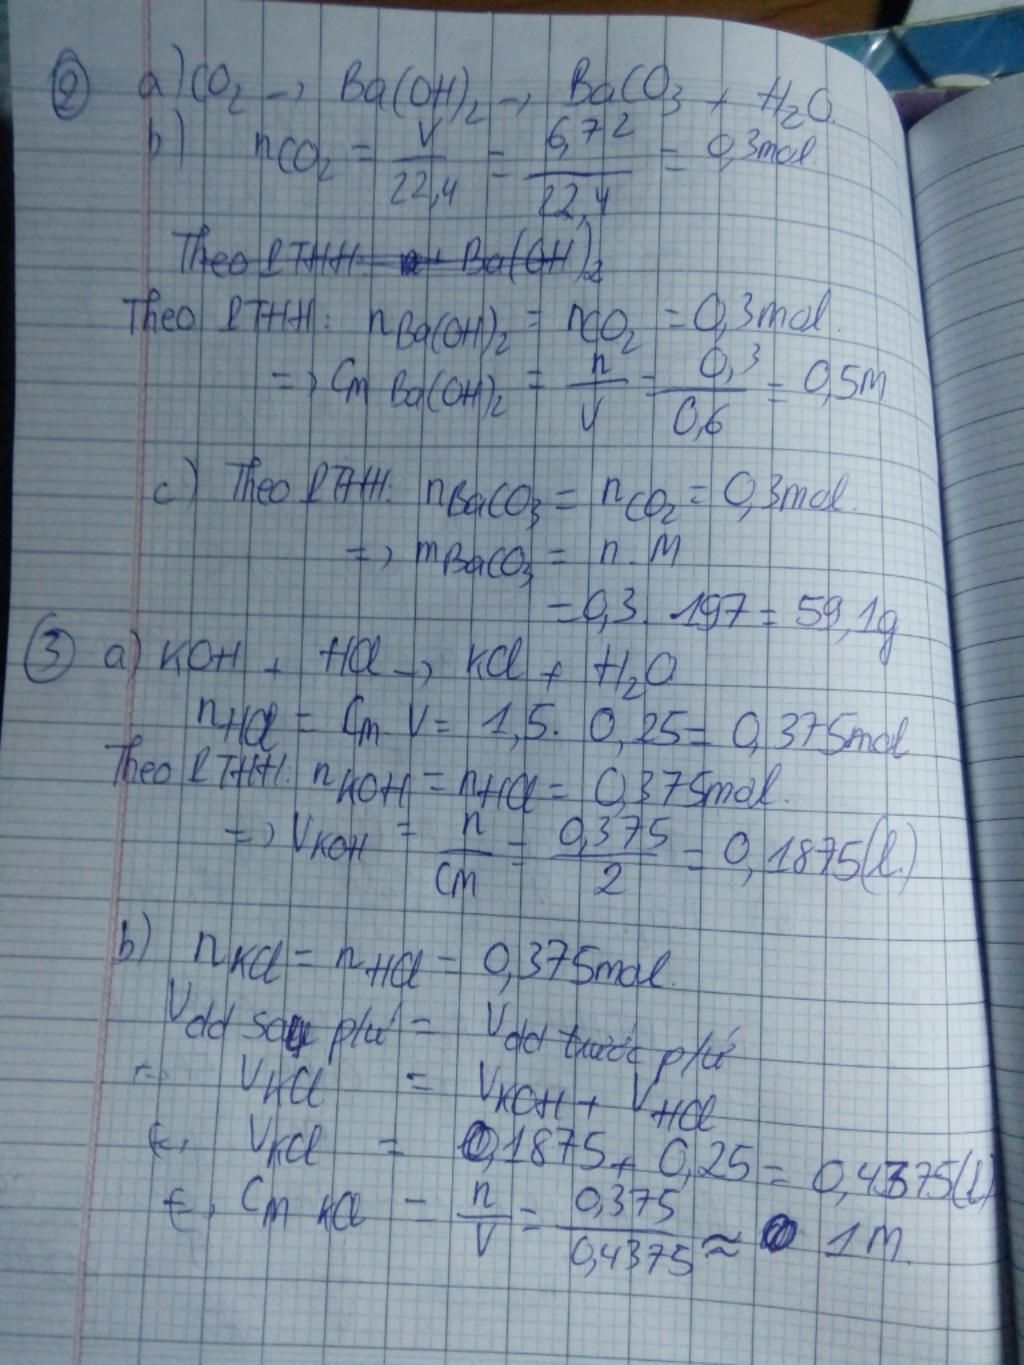 ② a) CO₂ → Ba(OH)₂ → BaCO₃ + H₂O
b) nCO₂ = V/22,4 = 6,72/22,4 = 0,3mol.
Theo PTHH: n Ba(OH)₂
Theo PTHH: nBa(OH)₂ = nCO₂ = 0,3mol.
=> Cm Ba(OH)₂ = n/V = 0,3/0,6 = 0,5M
c) Theo PTHH: nBaCO₃ = nCO₂ = 0,3mol.
=> mBaCO₃ = n.M
= 0,3. 197 = 59,1g
③ a) KOH + HCl → KCl + H₂O
nHCl = Cm.V = 1,5. 0,25 = 0,375mol
Theo PTHH: nKOH = nHCl = 0,375mol.
=> VKOH = n/CM = 0,375/2 = 0,1875(l.)
b) nKCl = nHCl = 0,375mol.
Vdd sau p/ứ = Vdd trước p/ứ
=> VKCl = VKOH + VHCl
VKCl = 0,1875 + 0,25 = 0,4375(l)
Cm KCl = n/V = 0,375/0,4375 ≈ 1M.